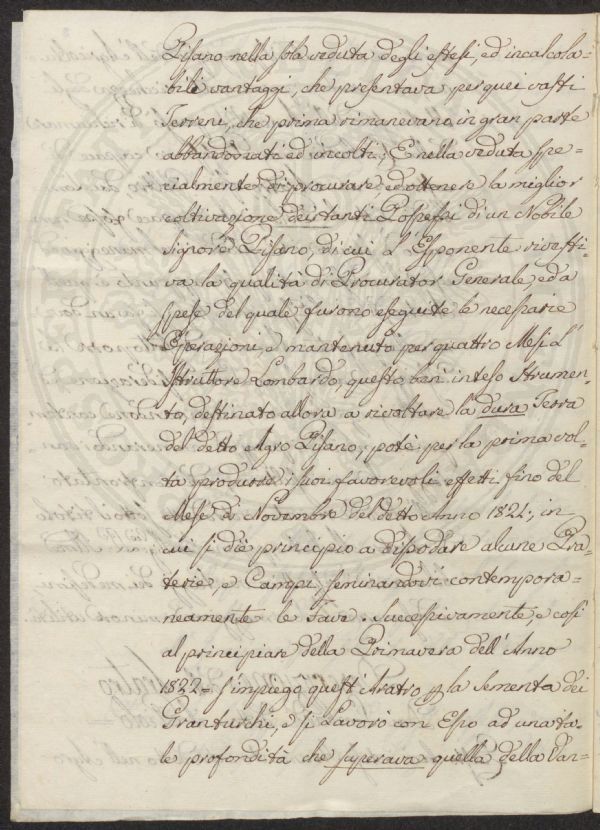 Pisano nella sola veduta degli estesi, ed incalcola=
bili vantaggi, che presentava per quei vasti
Terreni, che prima rimanevano in gran parte
abbandonati ed incolti; E nella veduta spe=
cialmente di procurare ed ottenere la miglior
coltivazione dei tanti Possessi di un Nobile
Signore Pisano, di cui l'Esponente rivesti=
va la qualità di Procurator Generale, ed a
spese del quale furono eseguite le necessarie
Operazioni, e mantenuto per quattro Mesi l'
Istruttore Lombardo, questo ben inteso Strumen=
to, destinato allora a rivoltare la dura Terra
del detto Agro Pisano, potè per la prima vol=
ta produrre i suoi favorevoli effetti fino del
Mese di Novembre del detto Anno 1821, in
cui si diè principio a dissodare alcune Pra=
terie, e Campi, seminandovi contempora=
neamente le Fave. Successivamente, e così
al principiare della Primavera dell'Anno
1822= s'impiegò quest'Aratro p la Sementa dei
Granturchi, e si lavorò con Esso ad una ta=
le profondità che superava quella della Van=